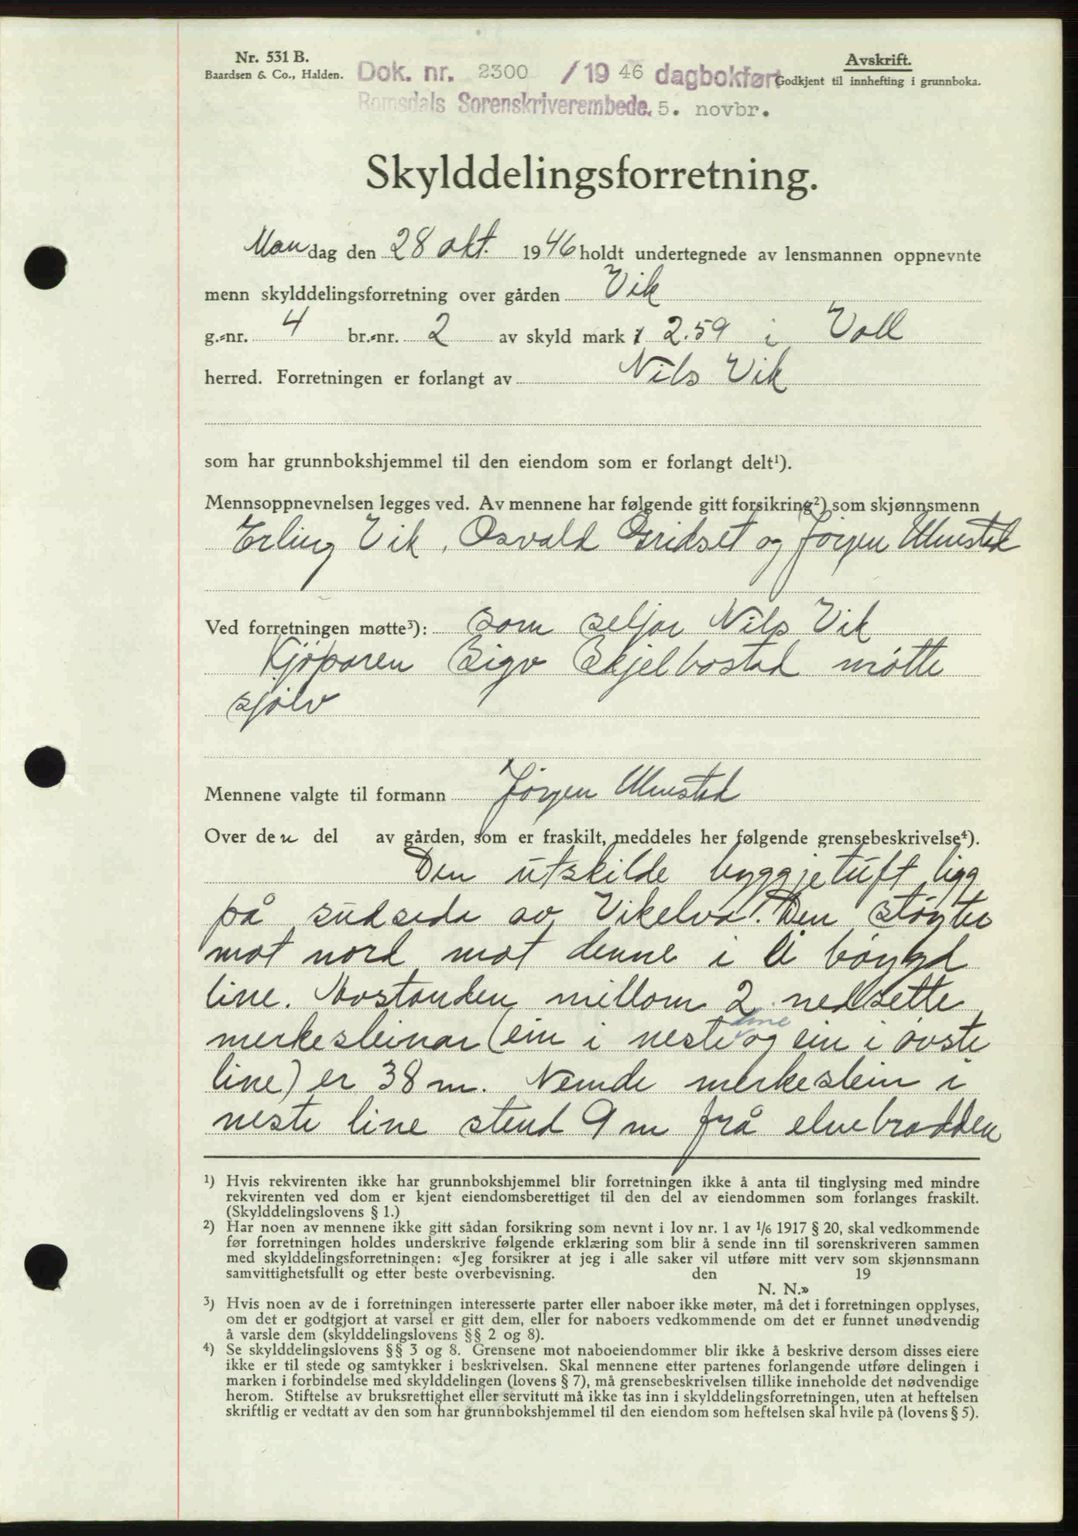 Nr. 531 B.
Baardsen & Co., Halden.
Dok. nr. 2300 / 19 46 dagbokført
Romsdals Sorenskriverembede. 5. novbr.
Avskrift.
Godkjent til innhefting i grunnboka.
Skylddelingsforretning.
Man dag den 28 okt. 19 46 holdt undertegnede av lensmannen oppnevnte
menn skylddelingsforretning over gården Vik
g.-nr. 4 br.-nr. 2 av skyld mark 2.59 i Voll
herred. Forretningen er forlangt av Nils Vik
som har grunnbokshjemmel til den eiendom som er forlangt delt¹).
Mennsoppnevnelsen legges ved. Av mennene har følgende gitt forsikring²) som skjønnsmenn
Erling Vik, Osvald Gridset og Jørgen Unustad
Ved forretningen møtte³): som seljar Nils Vik
Kjøparen Sigv Skjelbostad møtte
sjølv
Mennene valgte til formann Jørgen
Over den del av gården, som er fraskilt, meddeles her følgende grensebeskrivelse⁴).
Den utskilde byggjetuft ligg
på sudsida av Vikelva. Den støyter
mot nord mot denne i bøygd
line. Avstanden millom 2 nedsette
merkesteinar (ein i neste line og ein i øvste
line) er 38 m. Nemde merkestein i
neste line stend 9 m frå elvebradden
¹) Hvis rekvirenten ikke har grunnbokshjemmel blir forretningen ikke å anta til tinglysing med mindre
rekvirenten ved dom er kjent eiendomsberettiget til den del av eiendommen som forlanges fraskilt.
(Skylddelingslovens § 1.)
²) Har noen av mennene ikke gitt sådan forsikring som nevnt i lov nr. 1 av 1/6 1917 § 20, skal vedkommende
før forretningen holdes underskrive følgende erklæring som blir å sende inn til sorenskriveren sammen
med skylddelingsforretningen: «Jeg forsikrer at jeg i alle saker vil utføre mitt verv som skjønnsmann
samvittighetsfullt og etter beste overbevisning. den 19
N. N.»
³) Hvis noen av de i forretningen interesserte parter eller naboer ikke møter, må det i forretningen opplyses,
om det er godtgjort at varsel er gitt dem, eller for naboers vedkommende om det er funnet unødvendig
å varsle dem (skylddelingslovens §§ 2 og 8).
⁴) Se skylddelingslovens §§ 3 og 8. Grensene mot naboeiendommer blir ikke å beskrive dersom disses eiere
ikke er til stede og samtykker i beskrivelsen. Skal mennene etter partenes forlangende utføre delingen i
marken i forbindelse med skylddelingen (lovens § 7), må grensebeskrivelsen tillike inneholde det nødvendige
herom. Stiftelse av bruksrettighet eller servitutt må ikke tas inn i skylddelingsforretningen, uten at heftelsen
skriftlig er vedtatt av den som har grunnbokshjemmel til den eiendom som heftelsen skal hvile på (lovens § 5).